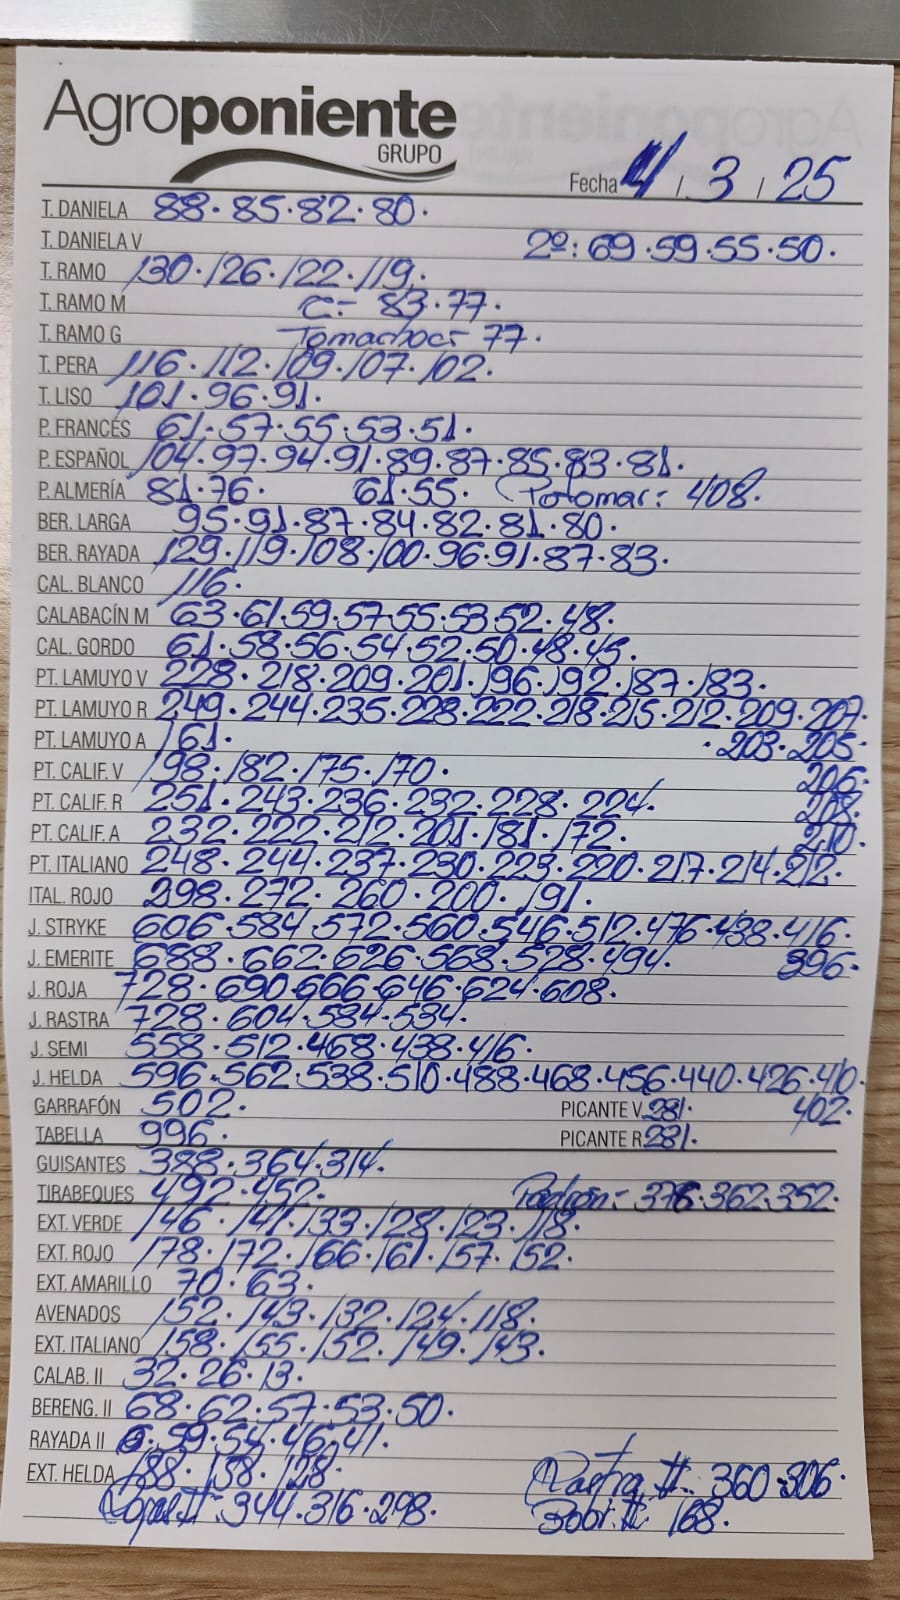 Agroponiente
GRUPO
Fecha 4 / 3 / 25
T. DANIELA 88. 85. 82. 80.
T. DANELA V 2º: 69. 59. 55. 50.
T. RAMO 130. 126. 122. 119.
T. RAMO M C:- 83. 77.
T. RAMO G 77.
T. PERA 116. 112. 109. 107. 102.
T. LISO 101. 96. 91.
P. FRANCÉS 61. 57. 55. 53. 51.
P. ESPAÑOL 104. 97. 94. 91. 89. 87. 85. 83. 81.
P. ALMERÍA 81. 76. 61. 55. 408.
BER. LARGA 95. 91. 87. 84. 82. 81. 80.
BER. RAYADA 129. 119. 108. 100. 96. 91. 87. 83.
CAL. BLANCO 116.
CALABACÍN M 63. 61. 59. 57. 55. 53. 52. 48.
CAL. GORDO 61. 58. 56. 54. 52. 50. 48. 45.
PT. LAMUYO V 228. 218. 209. 201. 196. 192. 187. 183.
PT. LAMUYO R 249. 244. 235. 228. 222. 218. 215. 212. 209. 207.
PT. LAMUYO A 161. . 203. 205.
PT. CALIF. V 198. 182. 175. 170. 206.
PT. CALIF. R 251. 243. 236. 232. 228. 224. 208.
PT. CALIF. A 232. 222. 212. 201. 181. 172. 210.
PT. ITALIANO 248. 244. 237. 230. 223. 220. 217. 214. 212.
ITAL. ROJO 298. 272. 260. 200. 191.
J. STRYKE 606. 584. 572. 560. 546. 512. 476. 438. 416.
J. EMERITE 688. 662. 626. 568. 528. 494. 396.
J. ROJA 728. 690. 666. 646. 624. 608.
J. RASTRA 728. 604. 584. 534.
J. SEMI 558. 512. 468. 438. 416.
J. HELDA 596. 562. 538. 510. 488. 468. 456. 440. 426. 410.
GARRAFÓN 502. PICANTE V. 281. 402.
TABELLA 996. PICANTE R 281.
GUISANTES 388. 364. 314.
TIRABEQUES 492. 452. Padrón:- 376. 362. 352.
EXT. VERDE 146. 141. 133. 128. 123. 118.
EXT. ROJO 178. 172. 166. 161. 157. 152.
EXT. AMARILLO 70. 63.
AVENADOS 152. 143. 132. 124. 118.
EXT. ITALIANO 158. 155. 152. 149. 143.
CALAB. II 32. 26. 13.
BERENG. II 68. 62. 57. 53. 50.
RAYADA II 59. 54. 46. 41.
EXT. HELDA 188. 158. 128. Rastra II: 360. 306.
Rojas II: 344. 316. 298. Bobi II: 168.